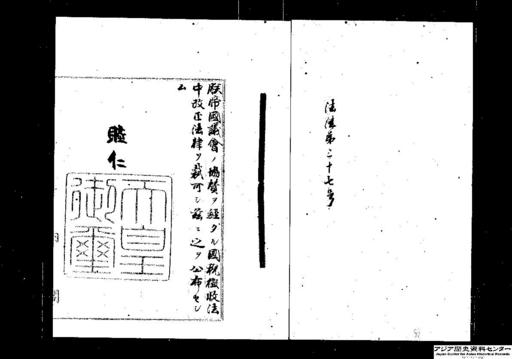 法律第三十七号
朕帝國議會ノ協賛ヲ經タル國税徴收法
中改正法律ヲ裁可シ茲ニ之ヲ公布セシ
ム
睦仁
天皇
御璽
アジア歴史資料センター
Japan Center for Asian Historical Records